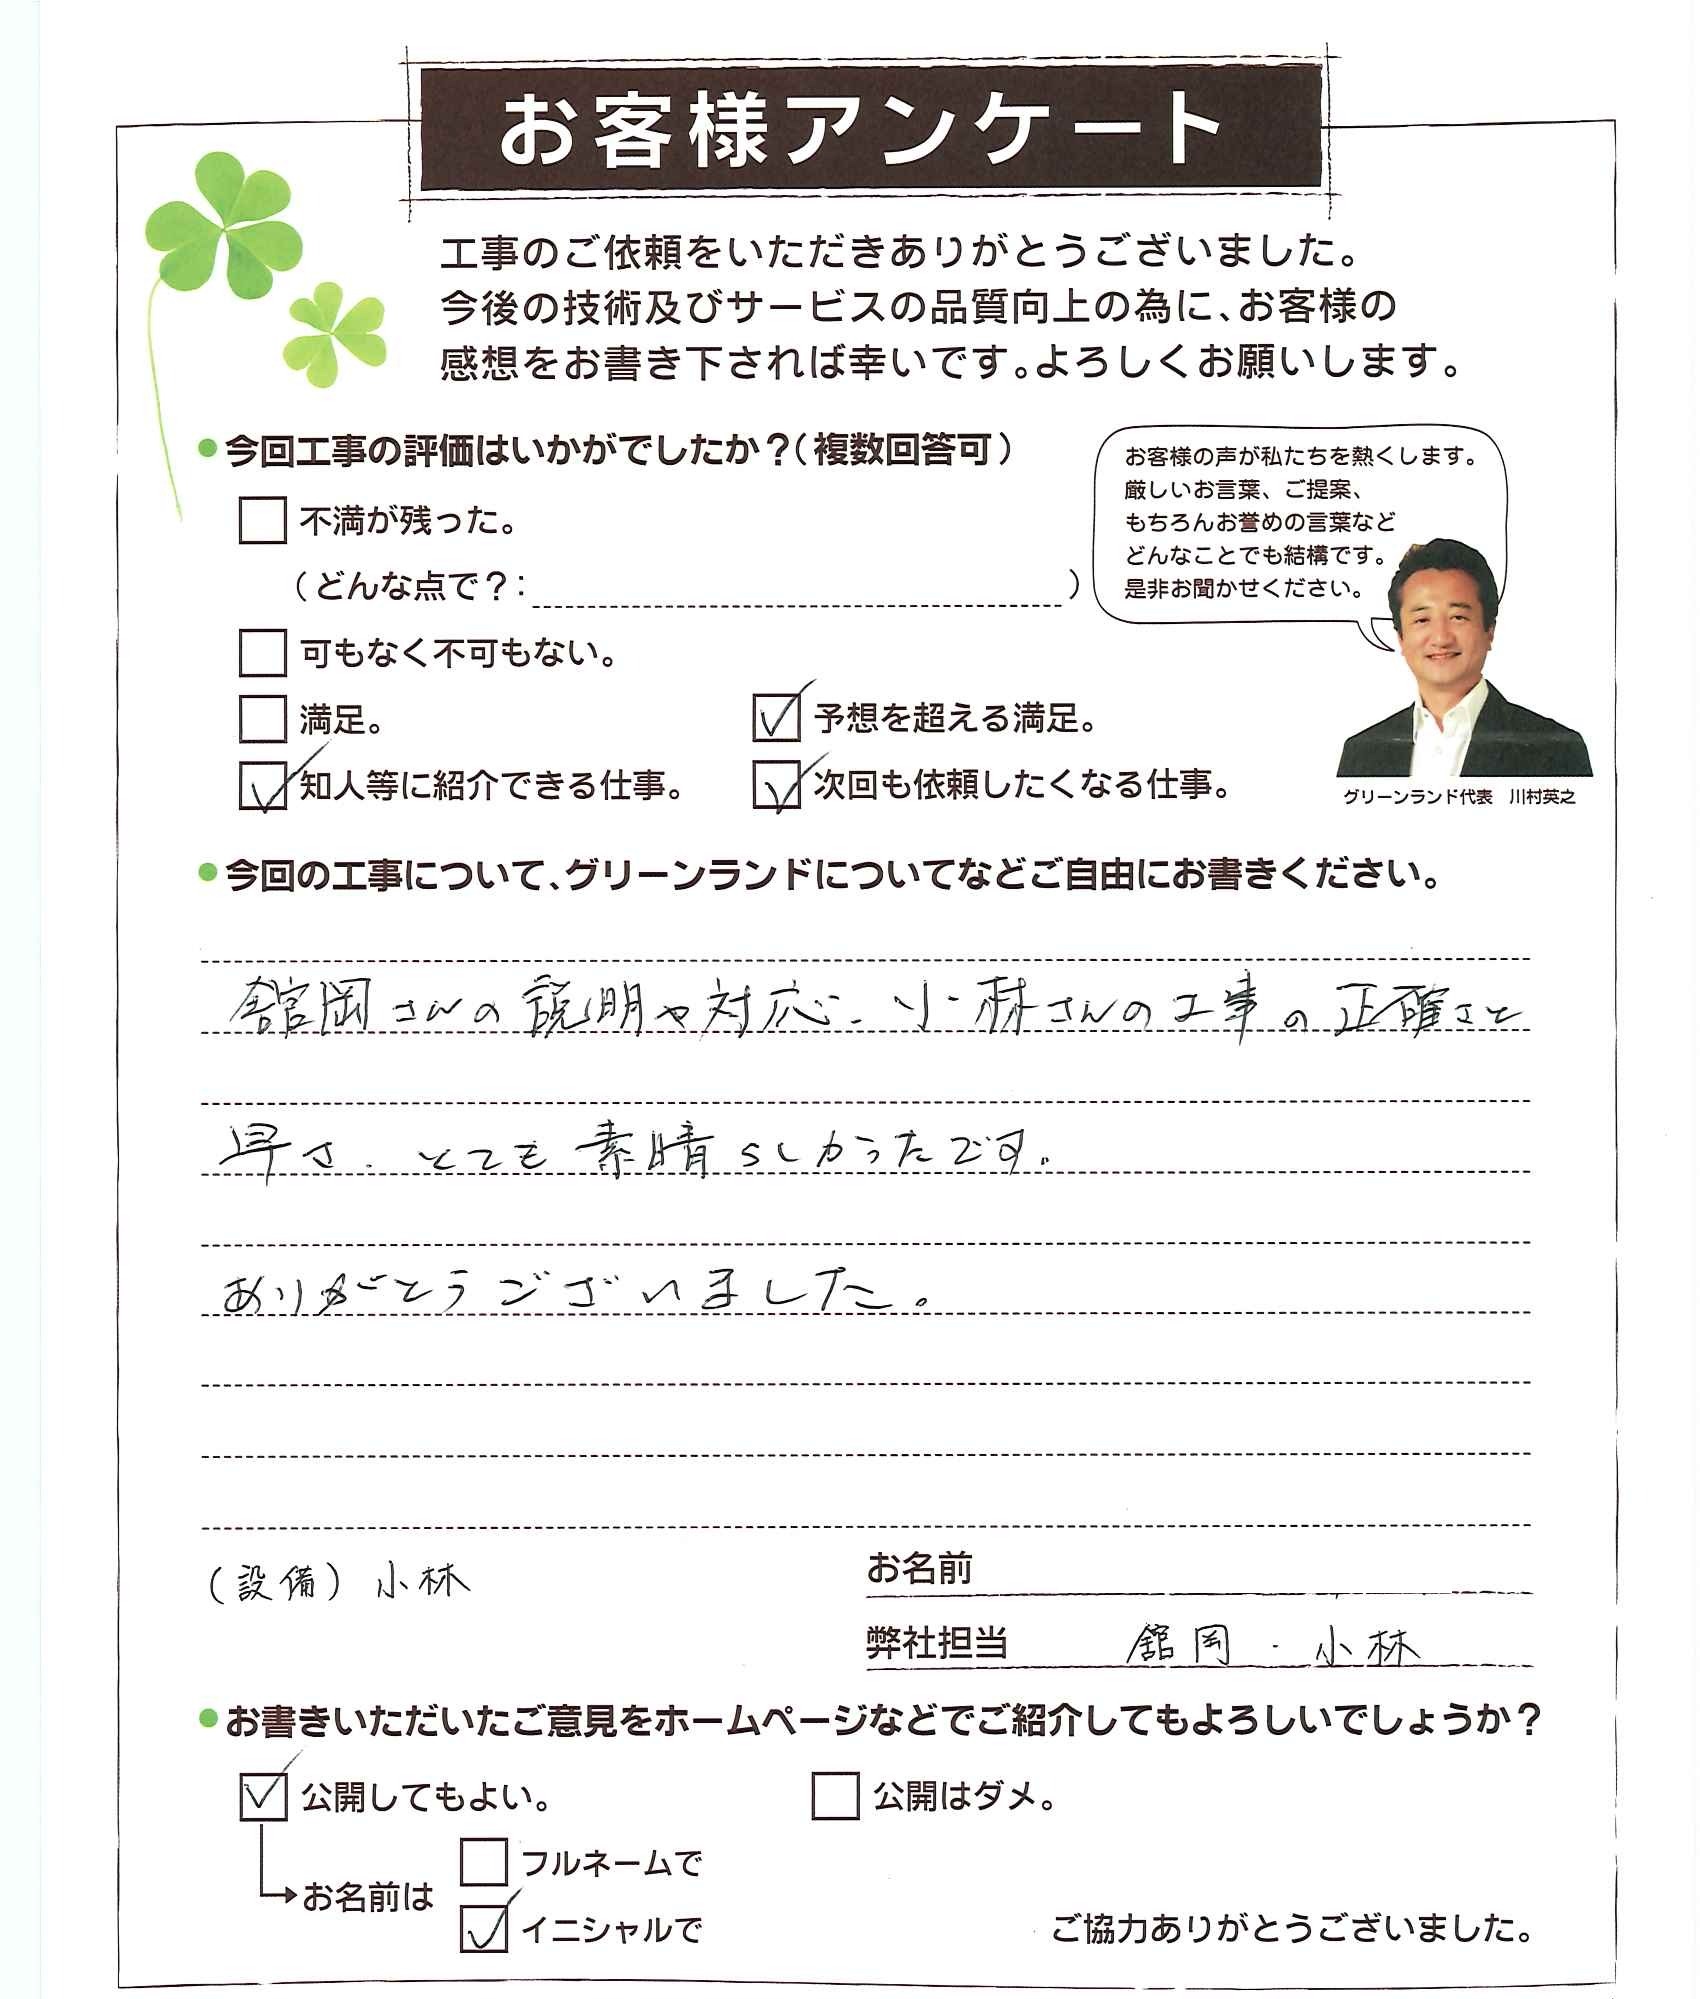 お客様アンケート
工事のご依頼をいただきありがとうございました。
今後の技術及びサービスの品質向上の為に、お客様の
感想をお書き下されば幸いです。よろしくお願いします。
●今回工事の評価はいかがでしたか？（複数回答可）
お客様の声が私たちを熱くします。
厳しいお言葉、ご提案、
もちろんお誉めの言葉など
どんなことでも結構です。
是非お聞かせください。
不満が残った。
（どんな点で？：　）
可もなく不可もない。
満足。
予想を超える満足。
知人等に紹介できる仕事。
次回も依頼したくなる仕事。
グリーンランド代表　川村英之
●今回の工事について、グリーンランドについてなどご自由にお書きください。
舘岡さんの説明や対応、小林さんの工事の正確さと
早さ、とても素晴らしかったです。
ありがとうございました。
（設備）小林
お名前
弊社担当　舘岡・小林
●お書きいただいたご意見をホームページなどでご紹介してもよろしいでしょうか？
公開してもよい。
公開はダメ。
お名前は
フルネームで
イニシャルで
ご協力ありがとうございました。